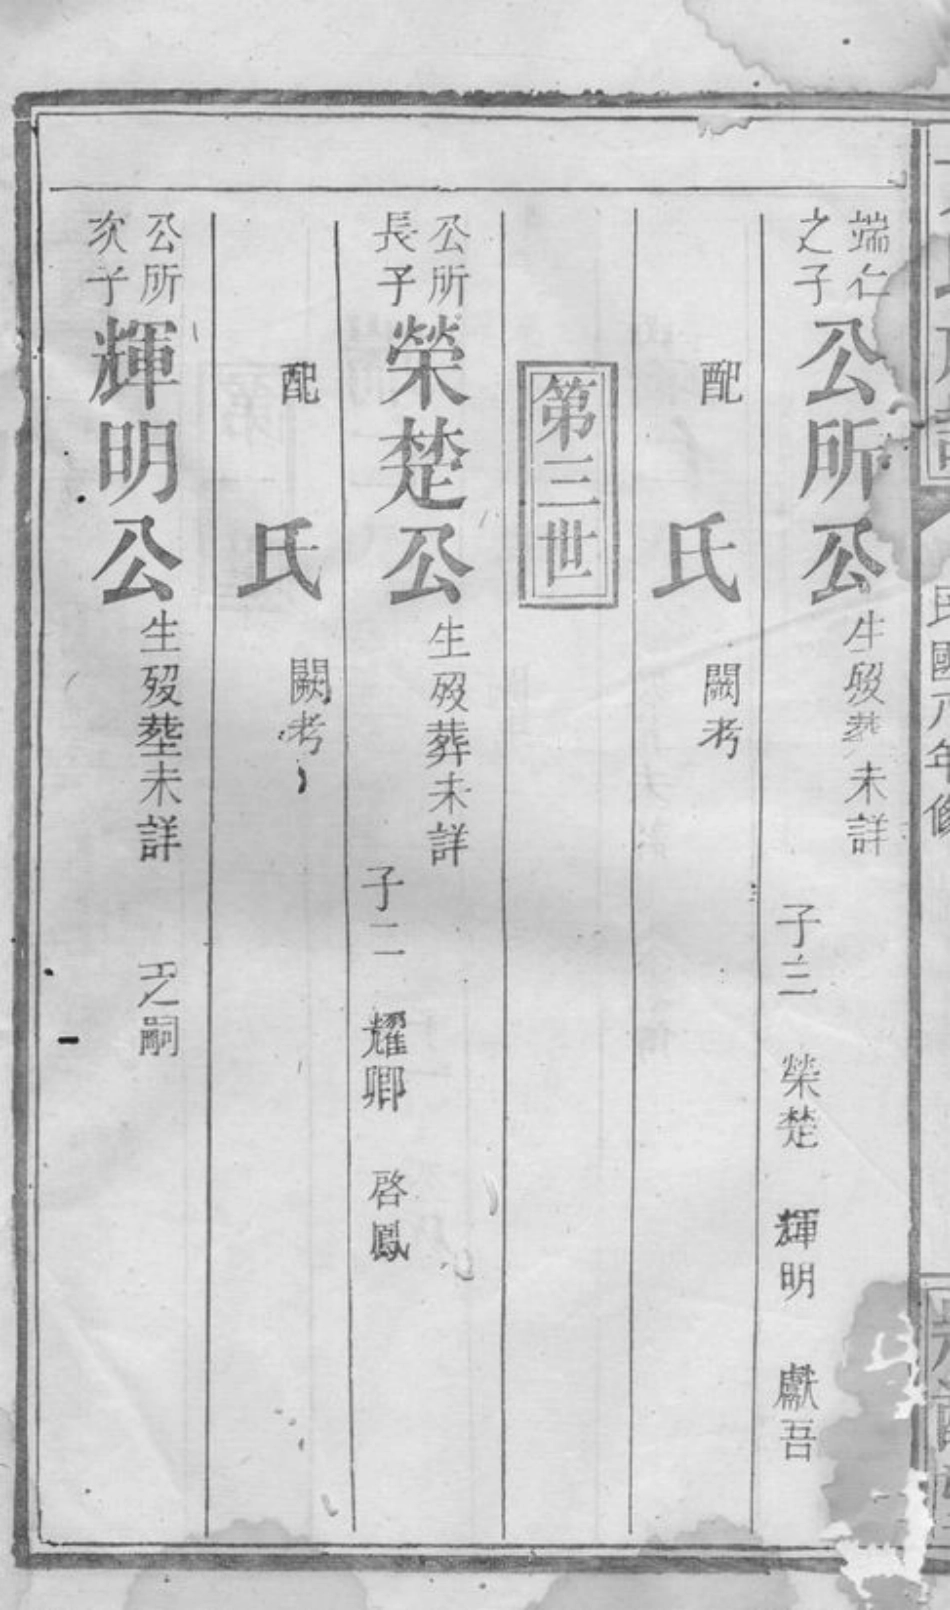 民國八年修
端仁
之子
公所公
生歿葬未詳
子三 榮楚 輝明 獻吾
配 氏 闕考
第三世
公所
長子
榮楚公
生歿葬未詳
子二 耀卿 啓鳳
配 氏 闕考
公所
次子
輝明公
生歿塟未詳 之嗣